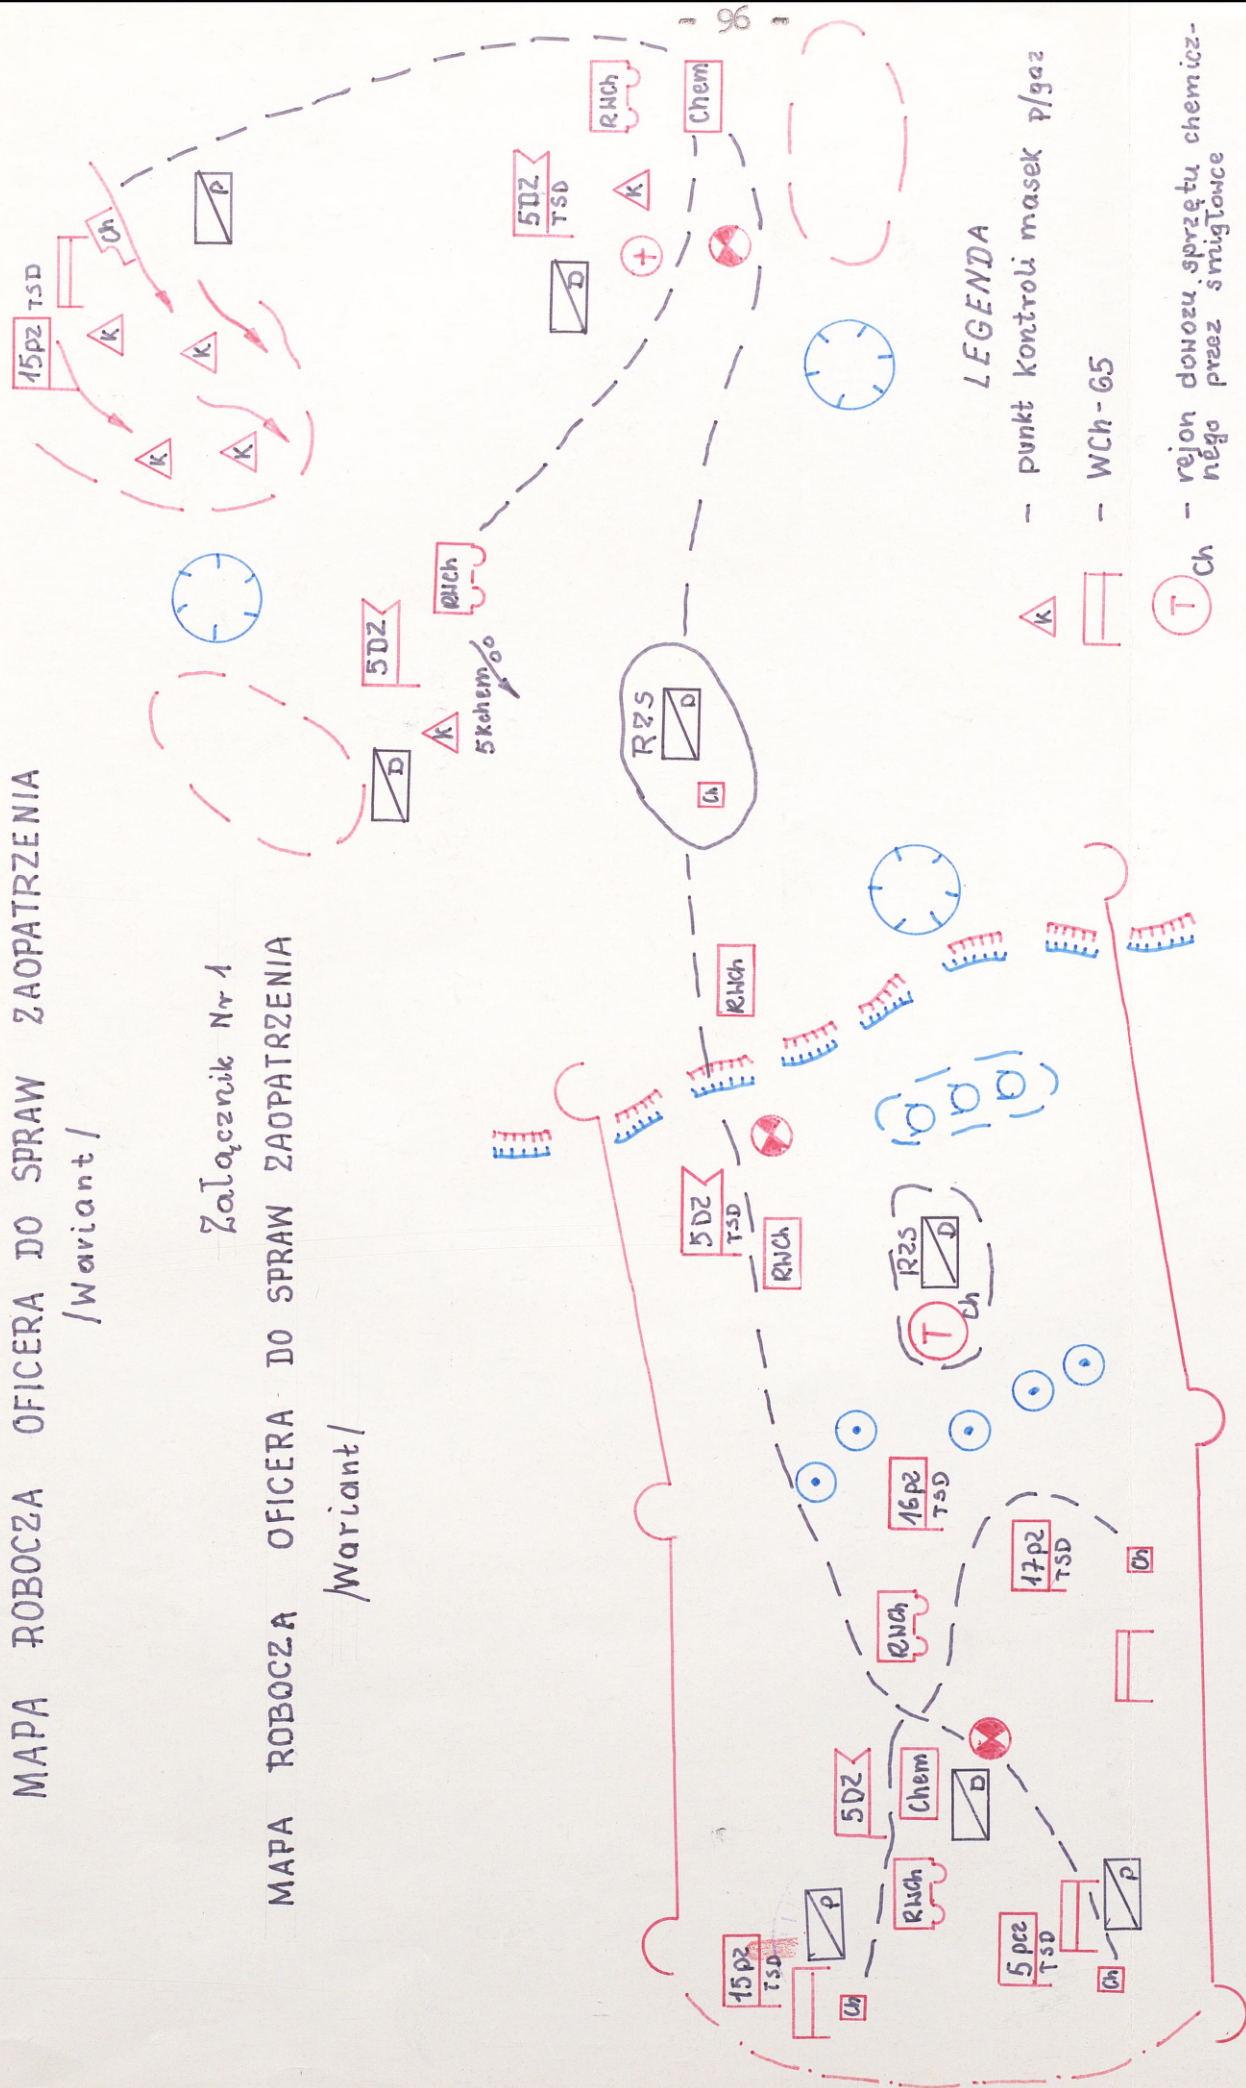 - 96 -
MAPA ROBOCZA OFICERA DO SPRAW ZAOPATRZENIA
/Wariant/
Załącznik Nr 1
MAPA ROBOCZA OFICERA DO SPRAW ZAOPATRZENIA
/Wariant/
15pz TSD
Ch
K
K
K
K
P
5DZ
TSD
RWCh
Chem
K
D
5DZ
RWCh
K
D
5kchem
RZS
D
Ch
RWCh
5DZ
TSD
RWCh
RZS
D
T Ch
16pz
TSD
17pz
TSD
Ch
RWCh
5DZ
Chem
D
RWCh
15pz
TSD
P
Ch
5pcz
TSD
P
Ch
LEGENDA
K - punkt kontroli masek p/gaz
- WCh-65
T Ch - rejon dowozu sprzętu chemicz-
nego przez śmigłowce